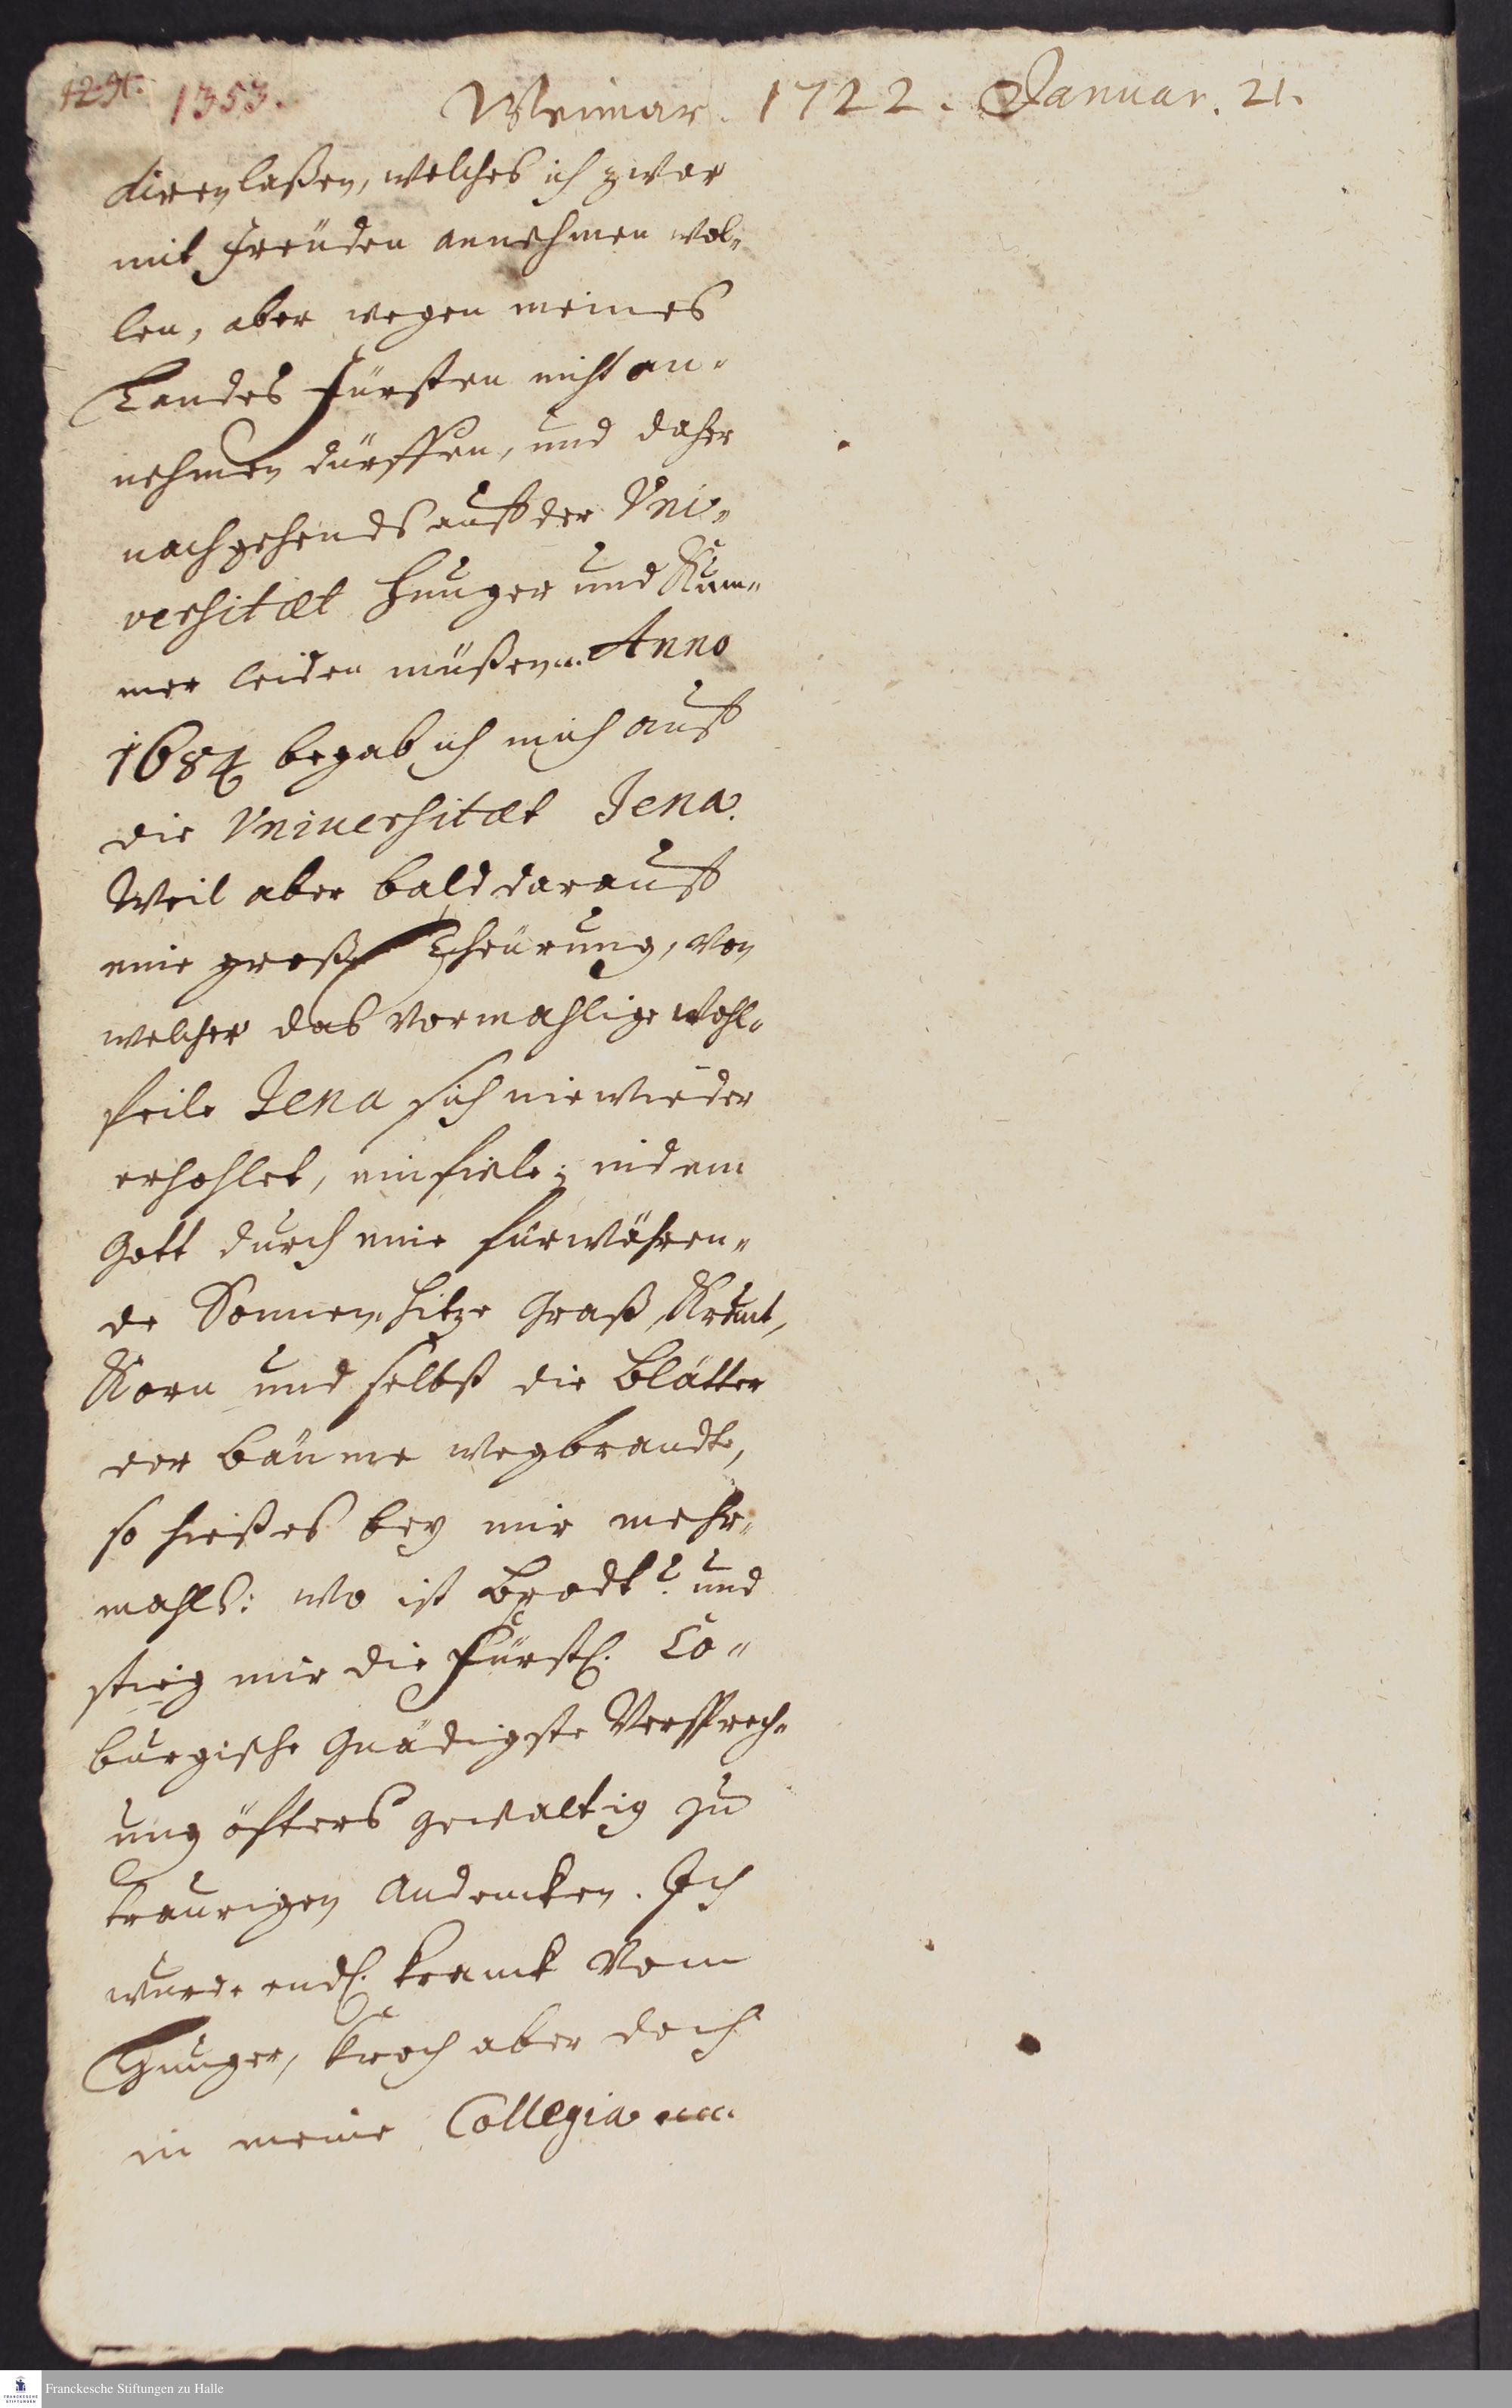 1353. Weimar. 1722. Januar. 21.
diren laßen, welches ich zwar
mit Freuden annehmen wol-
len, aber wegen meines
Landes Fürsten nicht an-
nehmen dürffen, und daher
nachgehends auff der Vni-
versitæt Hunger und Kum-
mer leiden müßen. Anno
1684 begab ich mich auff
die Vniversitæt Jena.
Weil aber bald darauff
eine große Theürung, von
welcher das vormahlige wohl-
feile Jena sich nie wieder
erhohlet, einfiele; indem
Gott durch eine fürwähren-
de Sonnen-Hitze Graß, Kraut,
Korn und selbst die Blätter
der Bäume wegbrandte,
so hieß es bey mir mehr-
mahls: wo ist Brodt? und
stieg mir die Fürstl. Co-
burgische Gnädigste Versprech-
ung öfters gewaltig zu
traurigen Andencken. Ich
wurde endl. kranck vom
Hunger, kroch aber doch
in meine Collegia
Franckesche Stiftungen zu Halle